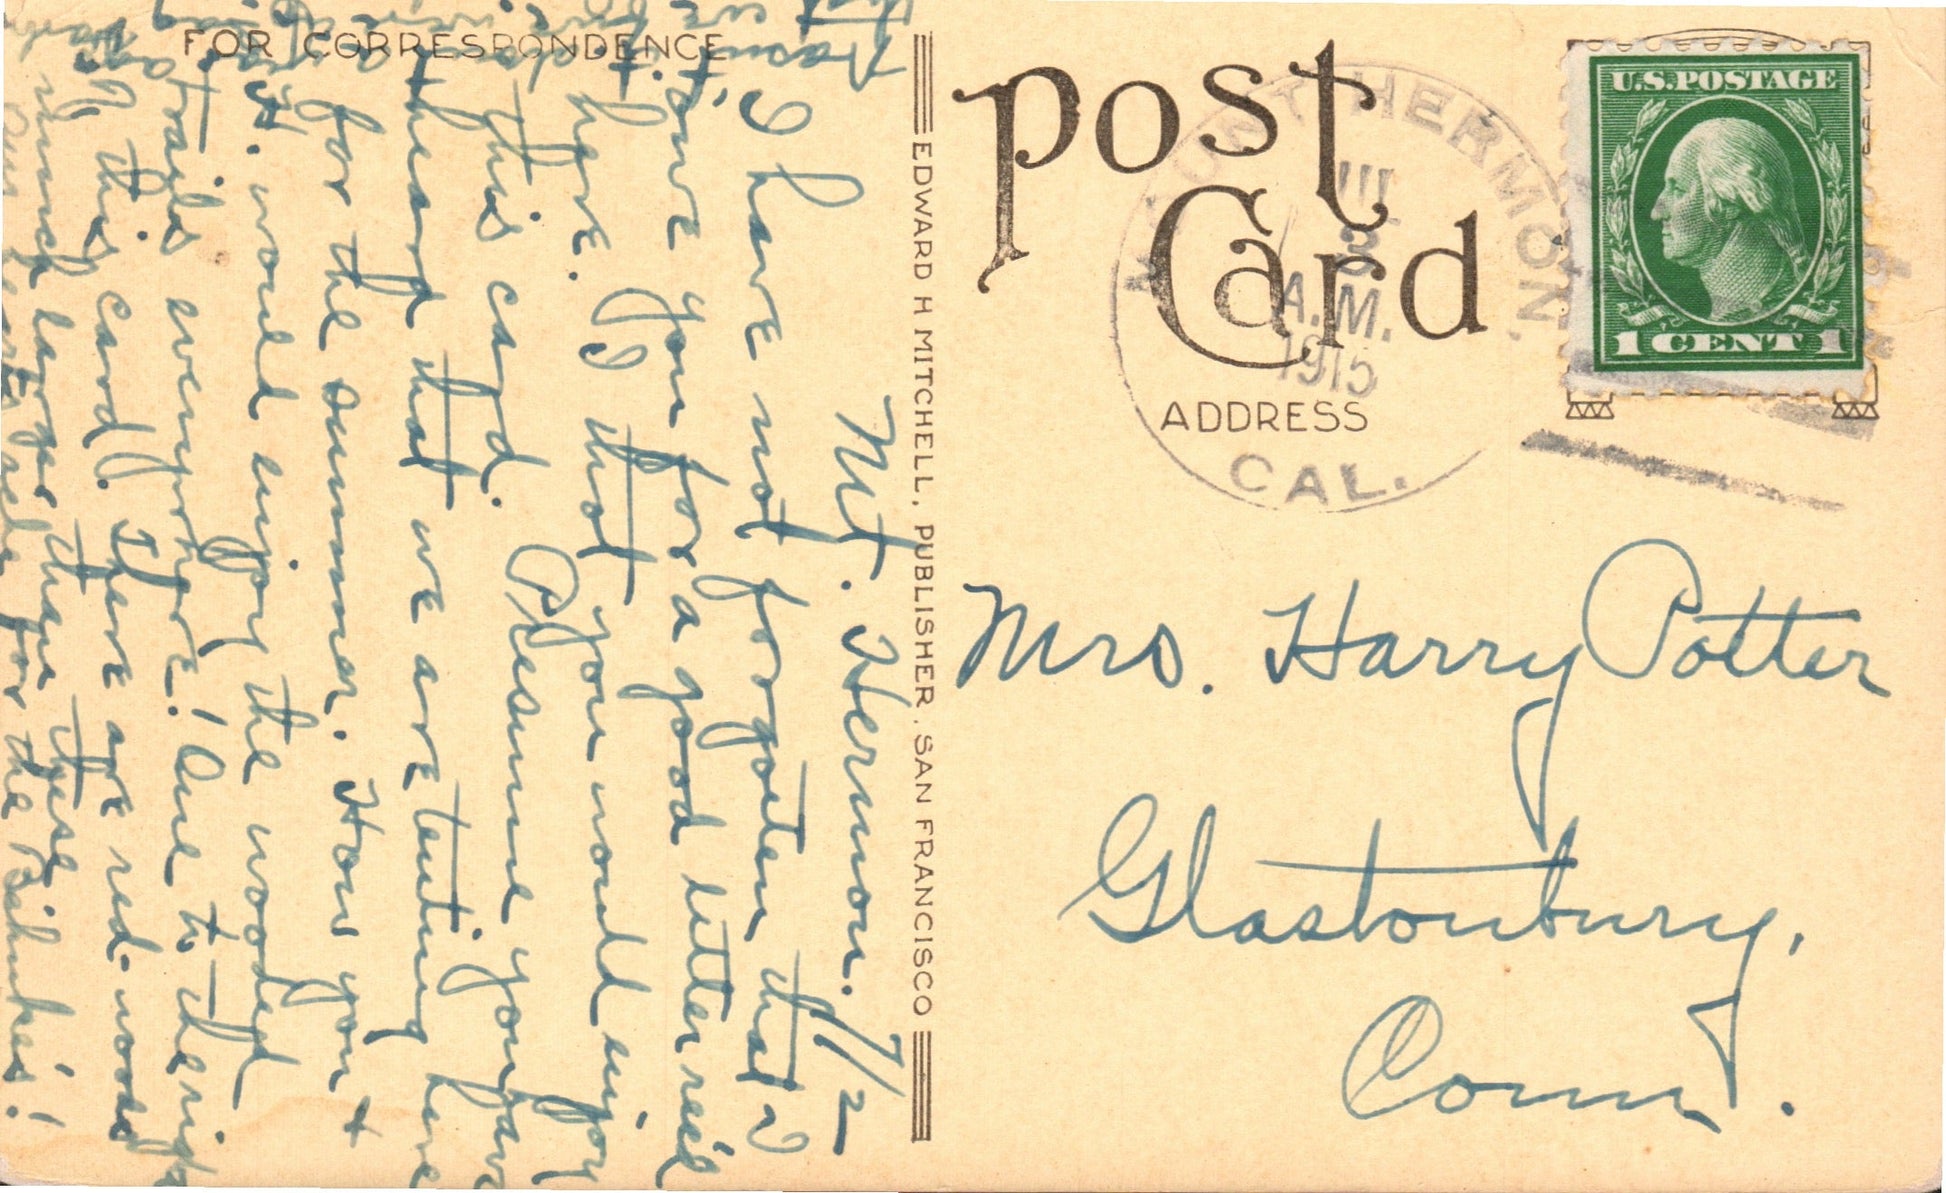 FOR CORRESPONDENCE
Mt. Hermon. 7/2
I have not forgoten that I
owe you for a good letter rec'd
here. I thot you would enjoy
this card. Presume you have
heard that we are tenting here
for the summer. How you +
H. would enjoy the wooded
trails everywhere! One to the right
this card. There are red-woods
much larger than these
for the Bishnke's!
EDWARD H MITCHELL, PUBLISHER, SAN FRANCISCO
Post
Card
ADDRESS
MOUNT HERMON,
A.M.
1915
CAL.
U.S. POSTAGE
1 CENT 1
Mrs. Harry Potter
Glastonbury,
Conn.